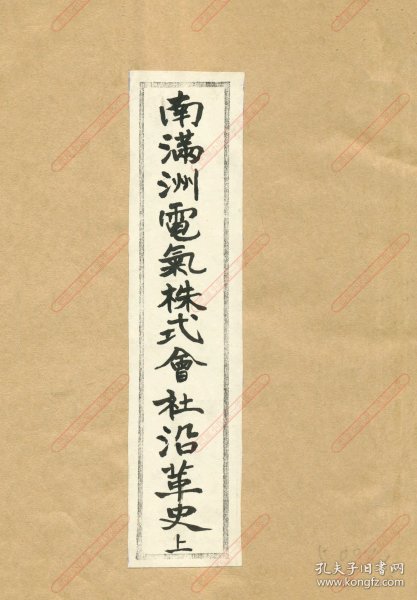 南滿洲電氣株式會社沿革史上
孔夫子旧书网
www.kongfz.com